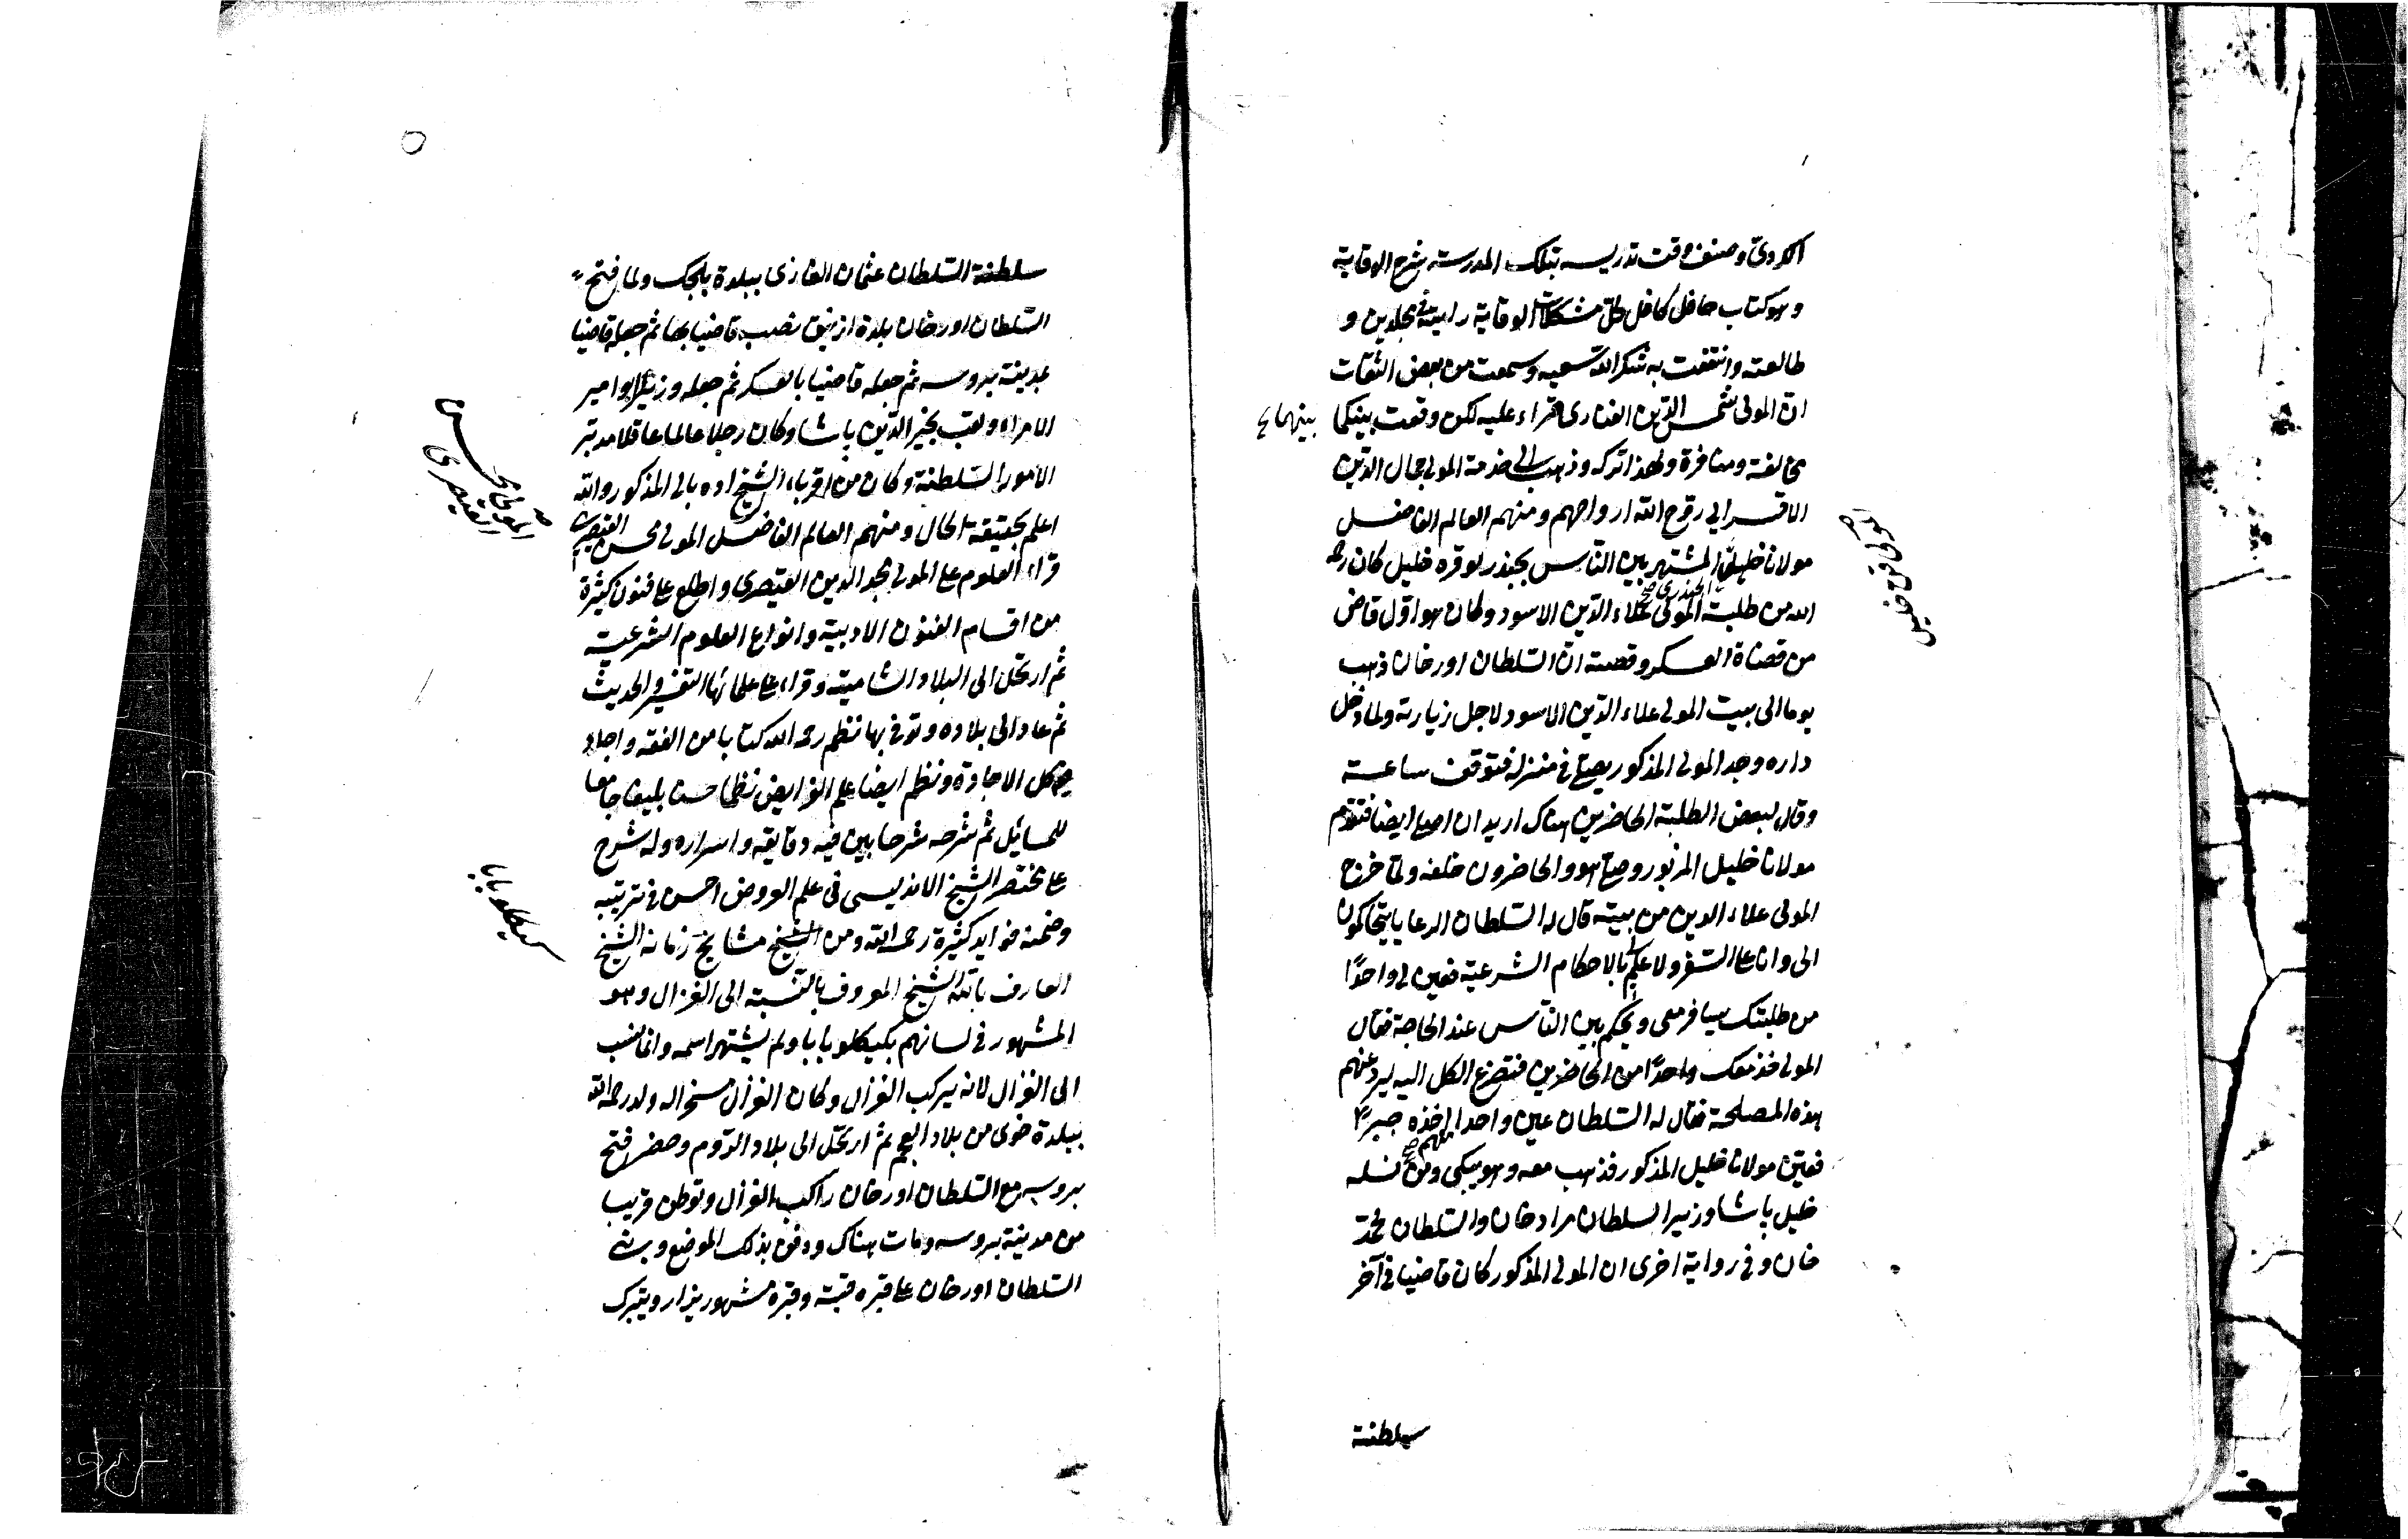 الكردى وصنف وقت تدريسه بتلك المدرسة شرح الوقاية
وهو كتاب حافل كافل لحل مشكلات الوقاية رايته فى مجلدين و
طالعته وانتفعت به شكر الله سعيه وسمعت من بعض الثقات
ان المولى شمس الدين الفنارى قراء عليه لكن وقعت بينهما
بينهما
مخالفة ومنافرة ولهذا تركه وذهب الى خدمة المولى جمال الدين
الاقسرايى روح الله ارواحهم ومنهم العالم الفاضل
مولانا خليل المشتهر بين الناس بجندرلو قره خليل كان رحمه
الجندرى صح
الله من طلبة المولى علاء الدين الاسود وكان هو اول قاض
المولى قره خليل
من قضاة العسكر وقصته ان السلطان اورخان ذهب
يوما الى بيت المولى علاء الدين الاسود لاجل زيارته ولما دخل
داره وجد المولى المذكور يصلى فى منزله فتوقف ساعة
وقال لبعض الطلبة الحاضرين هناك اريد ان اصلى ايضا فتقدم
مولانا خليل المزبور وصلى هو والحاضرون خلفه ولما خرج
المولى علاء الدين من بيته قال له السلطان الرعايا يتحاكمون
الى وانا على السفر ولا علم لى بالاحكام الشرعية فعين لى واحدا
من طلبتك يسافر معى ويحكم بين الناس عند الحاجة فقال
المولى خذ معك واحدا من الحاضرين فتضرع الكل اليه ليرد عنهم
هذه المصلحة فقال له السلطان عين واحدا اخذه جبرا
منهم صح
فعين مولانا خليل المذكور فذهب معه وهو يبكى ومن نسله
خليل باشا وزير السلطان مراد خان والسلطان محمد
خان وفى رواية اخرى ان المولى المذكور كان قاضيا فى آخر
سلطنة
سلطنة السلطان عثمان الغازى ببلدة بلجك ولما فتح
السلطان اورخان بلدة ازنيق نصب قاضيا بها ثم جعله قاضيا
بمدينة بروسه ثم جعله قاضيا بالعسكر ثم جعله وزيرا وامير
الامراء ولقب بخير الدين باشا وكان رجلا عالما عاقلا مدبر
الامور السلطنة وكان من اقرباء الشيخ اده بالى المذكور والله
اعلم بحقيقة الحال ومنهم العالم الفاضل المولى محسن القيصرى
المولى محسن
القيصرى
قراء العلوم على المولى مجد الدين القيصرى واطلع على فنون كثيرة
من اقسام الفنون الادبية وانواع العلوم الشرعية
ثم ارتحل الى البلاد الشامية وقراء على علمائها التفسير والحديث
ثم عاد الى بلاده وتوفى بها نظم رحمه الله كتابا من الفقه واجاد
كل الاجادة ونظم ايضا علم الفرايض نظما حسنا بليغا جامعا
للمسائل ثم شرحه شرحا بين فيه دقايقه واسراره وله شرح
على مختصر الشيخ الاندلسى فى علم العروض احسن فى ترتيبه
وضمنه فوايد كثيرة رحمه الله ومن الشيخ مشايخ زمانه الشيخ
كيكلو بابا
العارف بالله الشيخ المعروف بالنسبة الى الغزال وهو
المشهور فى لسانهم بكيكلو بابا ولم يشتهر اسمه وانما نسب
الى الغزال لانه يركب الغزال وكان الغزال مسخرا له ولد رحمه الله
ببلدة خوى من بلاد العجم ثم ارتحل الى بلاد الروم وحضر فتح
بروسه مع السلطان اورخان راكب الغزال وتوطن قريبا
من مدينة بروسه ومات هناك ودفن بذلك الموضع وبنى
السلطان اورخان على قبره قبة وقبره مشهور يزار ويتبرك